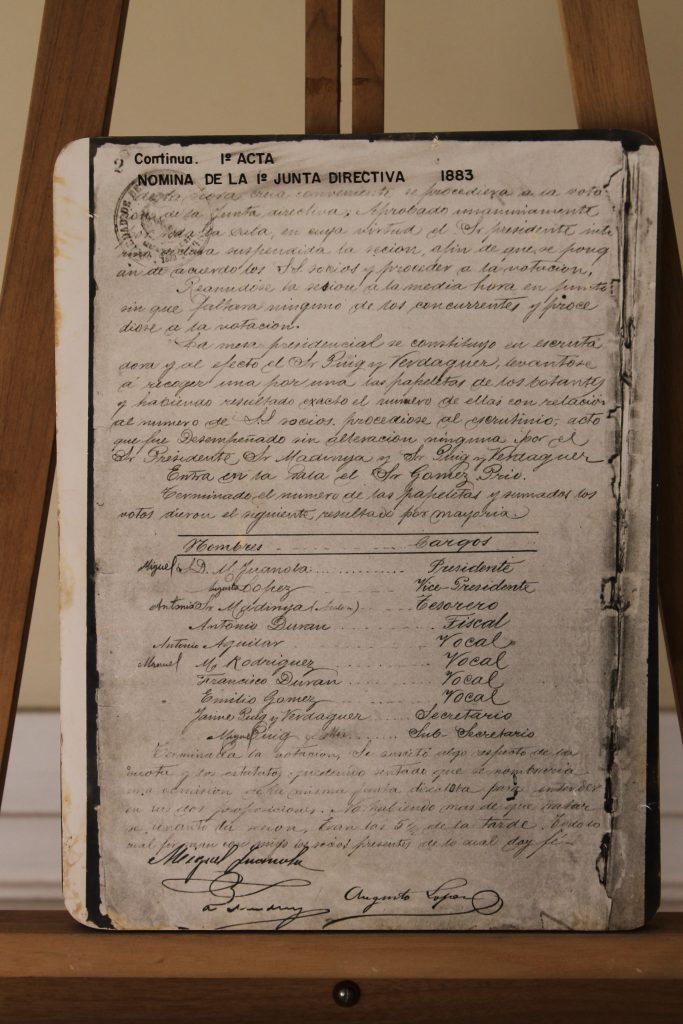 2 Continua. 1º ACTA
NOMINA DE LA 1º JUNTA DIRECTIVA 1883
hora crea conveniente, se procediera a la vota
cion de la Junta directiva; Aprobado unanimemente
por toda la Sala, en cuya virtud el Sr presidente inte
rino declara suspendida la secion, afin de que, se pong
an de acuerdo los S.S. socios y proceder a la votacion,
Reanudóse la sesion á la media hora en punto
sin que faltara ninguno de los concurrentes y proce
diose a la votacion.
La mesa presidencial se constituyo en escruta
dora y al efecto el Sr Püig y Verdaguer, levantóse
á recoger una por una las papeletas de los botantes
y haciendo resultado exacto el número de ellas con relacion
al numero de S.S. socios, procediose al escrutinio, acto
que fue Desempeñado sin alteracion ninguna por el
Sr Presidente Sr Madinya y Sr Puig y Verdaguer
Entra en la Sala el Sr Gomez Brio.
Terminado el numero de las papeletas y sumados los
votos dieron el siguiente, resultado por mayoria.
Nombres Cargos
Miguel S.D. M. Juanola Presidente
Augusto Lopez Vice-Presidente
Antonio Sr Madinya Tesorero
Antonio Duran Fiscal
Antonio Aguilar Vocal
Manuel M. Rodriguez Vocal
Francisco Duran Vocal
Emilio Gomez Vocal
Jaime Puig y Verdaguer Secretario
Miguel Puig Sub-Secretario
Terminada la votacion, Se suscitó algo respecto de la
cuota y los estatutos, quedando sentado que se nombraria
una comision de la misma junta directiva para entender
en las dos proposiciones. No habiendo mas de que tratar
se levanto la secion, Eran las 5½ de la tarde. Todo lo
cual firman con migo los socios presentes de lo cual doy fé
Miguel Juanola
Augusto Lopez